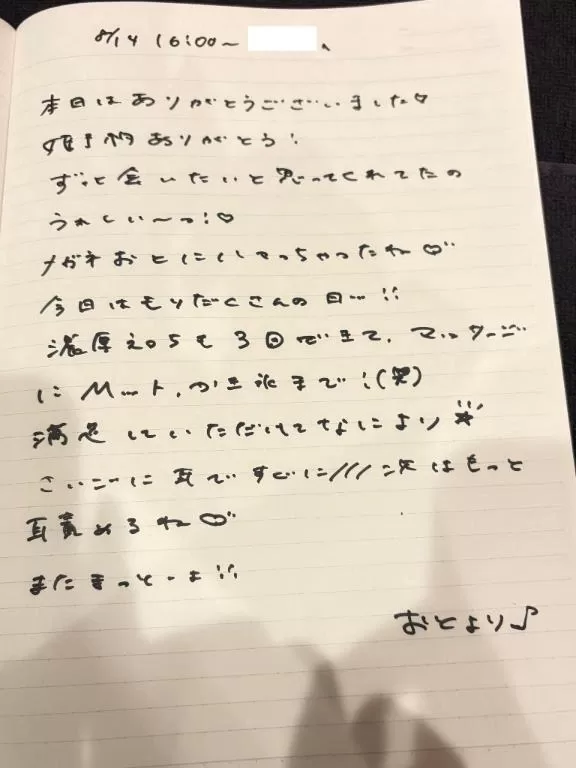 8/14 16:00～
本日はありがとうございました♡
ありがとう!
ずっと会いたいと思ってくれてたの
うれしい〜っ!♡
メガネおとにしてっちゃったね♡
今日はもりだくさんの日…!!
濃厚えっちも3回できて、マッサージ
にMット、かき氷まで!(笑)
満足していただけてなにより☆
さいごに耳ですぐに///次はもっと
耳責めるね♡
またまってーよ!!
おとより♪